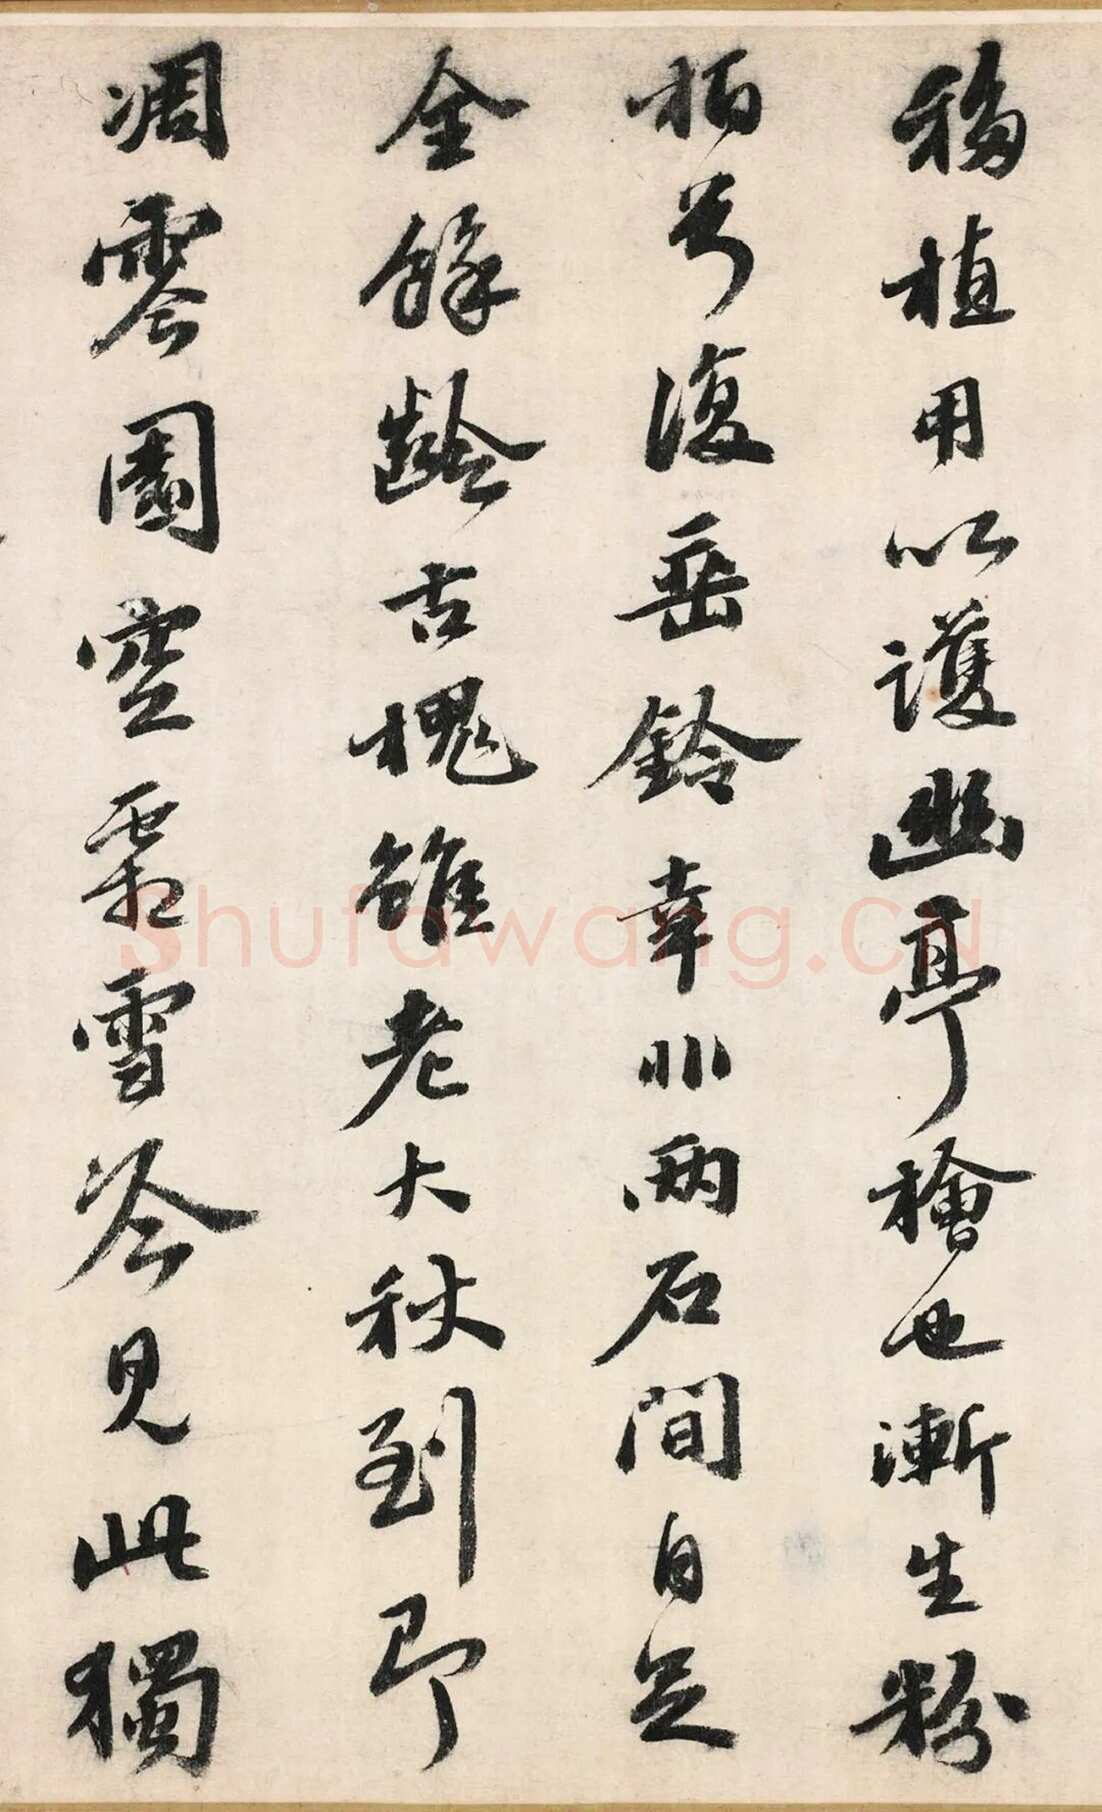 移植用以護幽亭檜也漸生粉
栢兮復垂鈴幸非兩石間自足
全餘齡古槐雖老大秋到即
凋零園空霜雪冷見此獨
Shufawang.CN